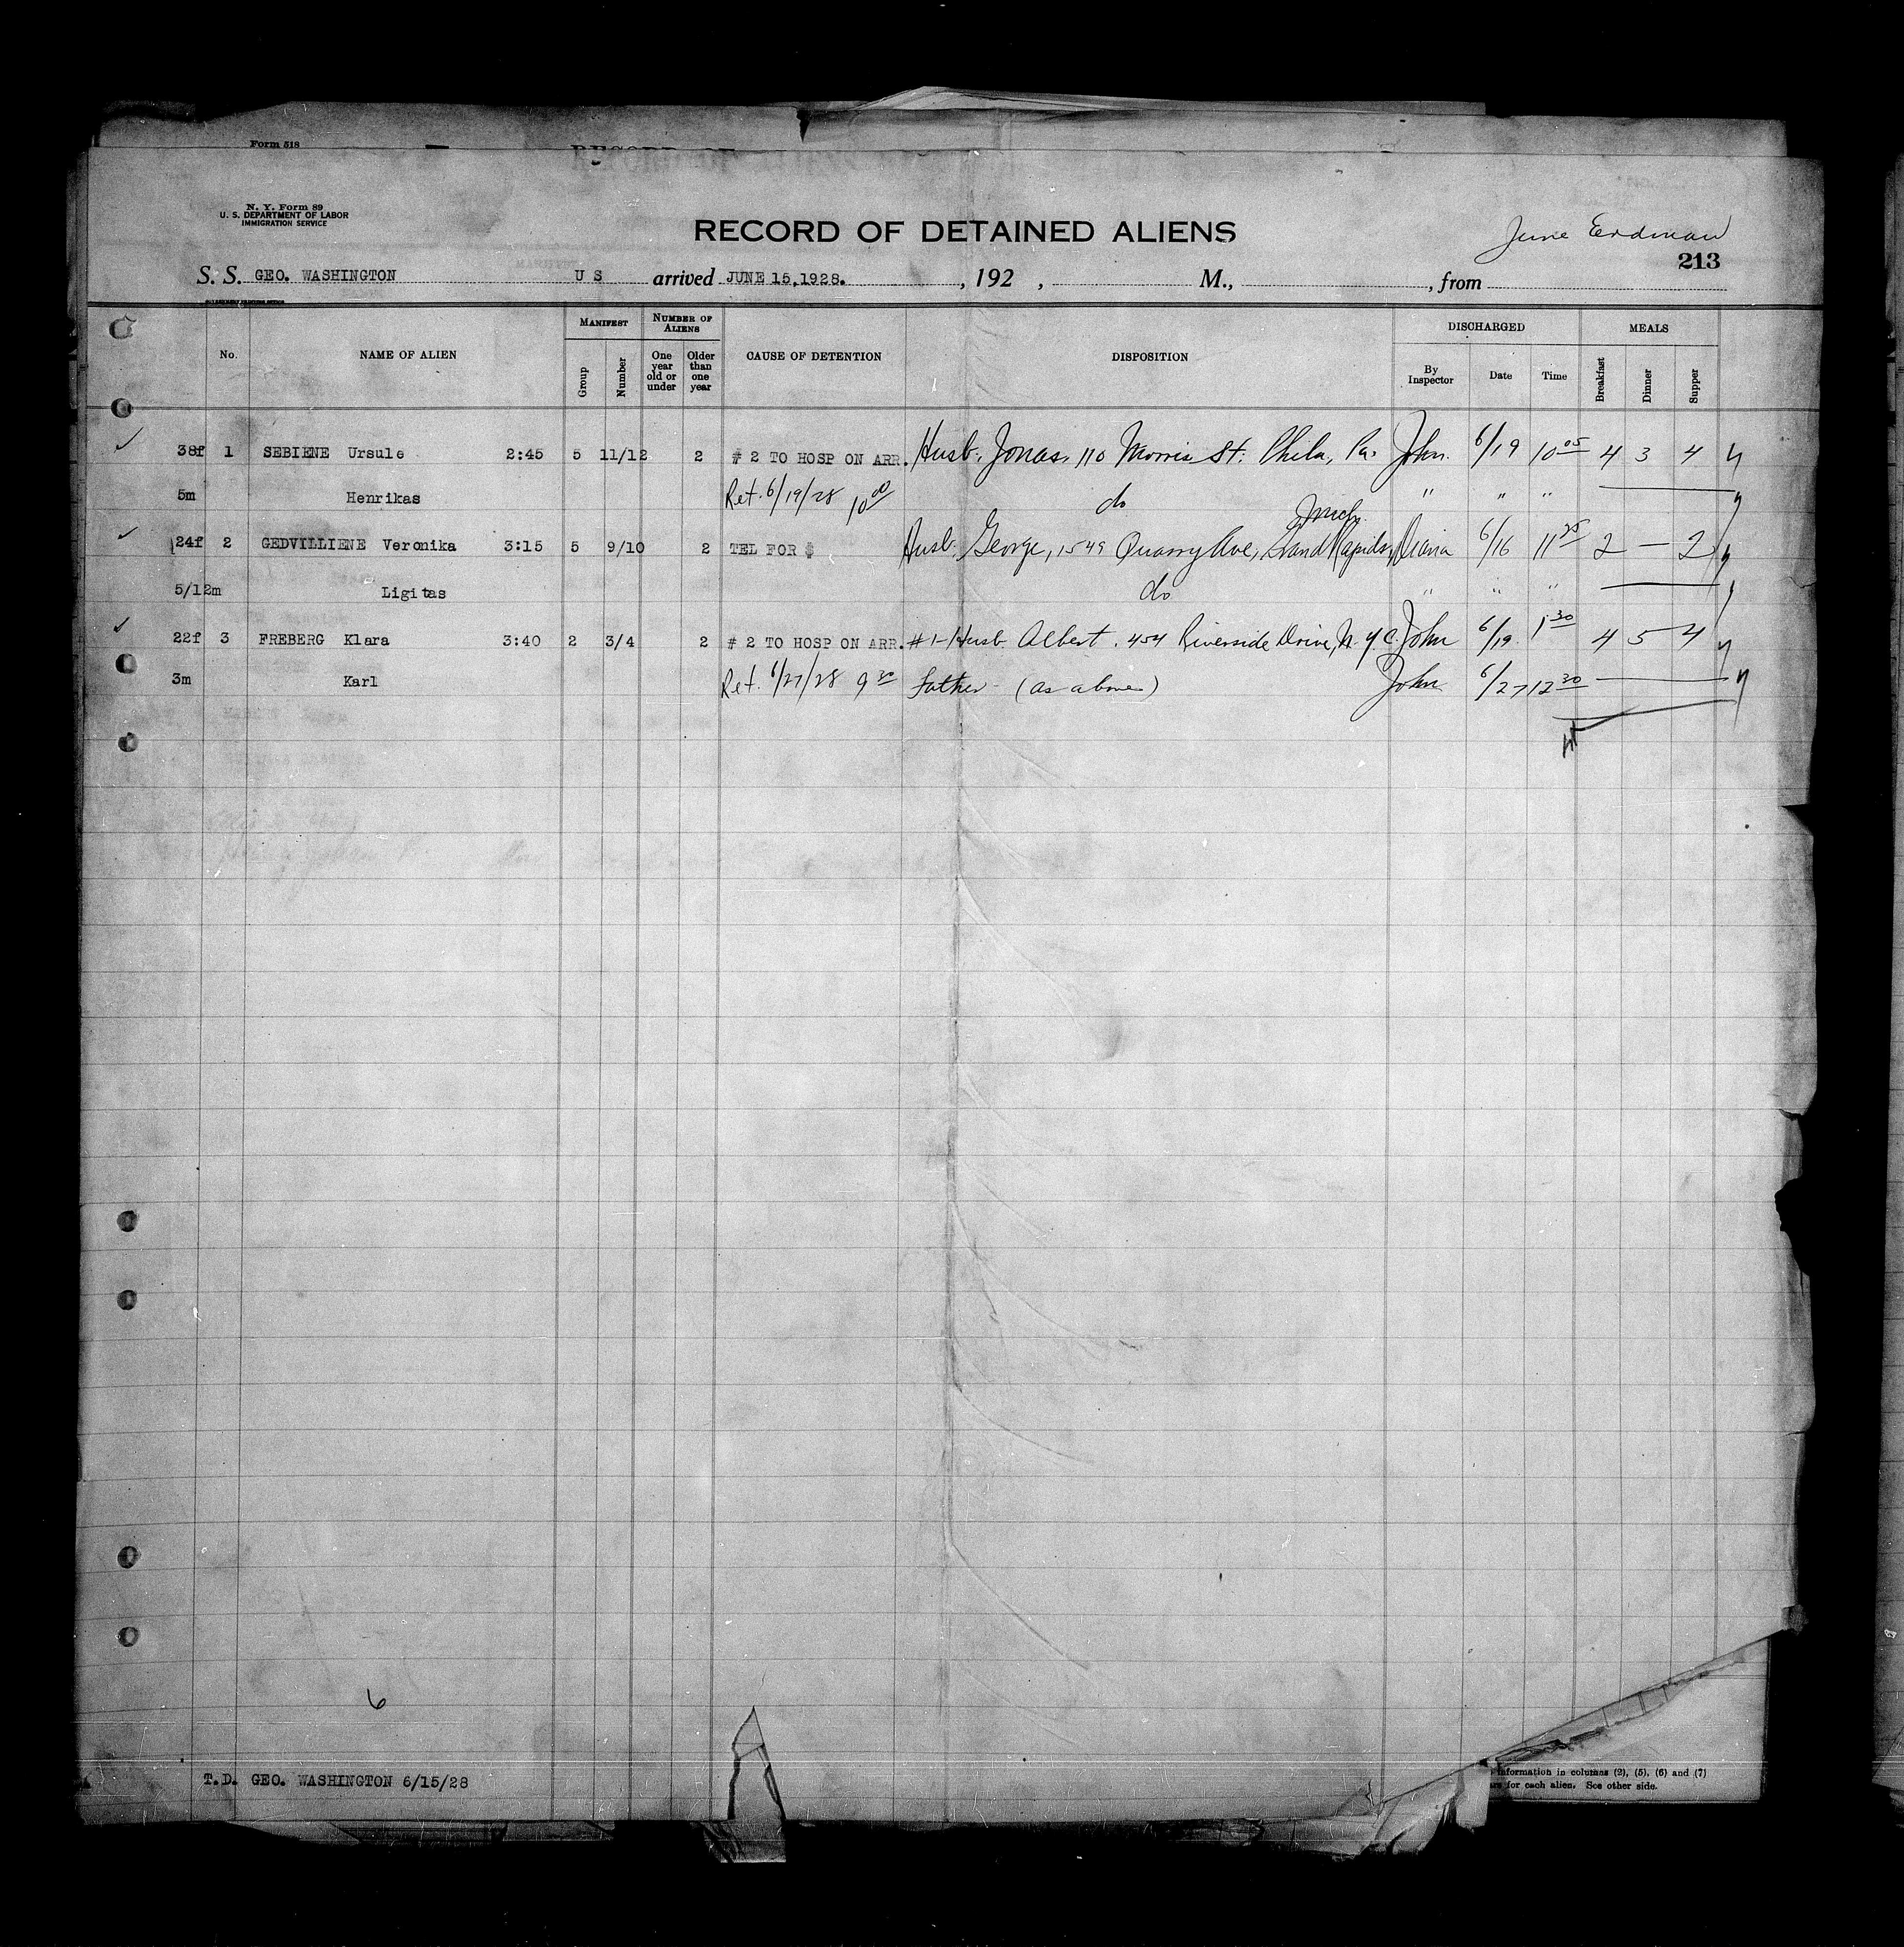 Form 518
N. Y. Form 89
U. S. DEPARTMENT OF LABOR
IMMIGRATION SERVICE
RECORD OF DETAINED ALIENS
June Erdman
213
S. S. GEO. WASHINGTON U S arrived JUNE 15,1928. , 192 , M., , from
No. NAME OF ALIEN MANIFEST Group Number NUMBER OF ALIENS One year old or under Older than one year CAUSE OF DETENTION DISPOSITION DISCHARGED By Inspector Date Time MEALS Breakfast Dinner Supper
38f 1 SEBIENE Ursule 2:45 5 11/12 2 # 2 TO HOSP ON ARR. Husb. Jonas. 110 Morris St. Phila, Pa. John. 6/19 10 05 4 3 4
5m Henrikas Ret. 6/19/28 10 00 do " " "
Mich.
24f 2 GEDVILLIENE Veronika 3:15 5 9/10 2 TEL FOR $ Husb. George, 1549 Quarry Ave, Grand Rapids, Diana 6/16 11 25 2 — 2
5/12m Ligitas do " " "
22f 3 FREBERG Klara 3:40 2 3/4 2 # 2 TO HOSP ON ARR. #1-Husb. Albert. 454 Riverside Drive, N.Y.C. John 6/19. 1 30 4 5 4
3m Karl Ret. 6/27/28 9 30 Father (as above) John 6/27 12 30
6
T.D. GEO. WASHINGTON 6/15/28
information in columns (2), (5), (6) and (7)
for each alien. See other side.